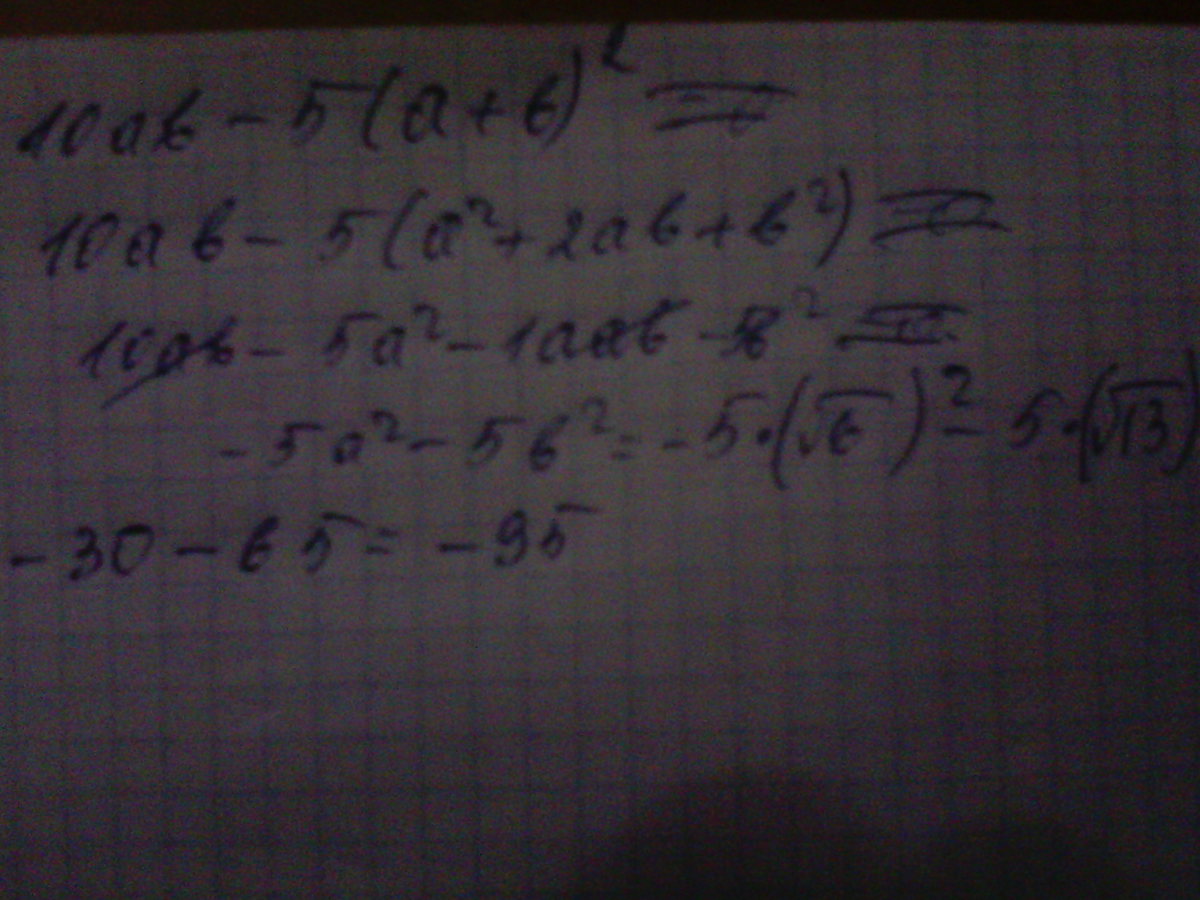 10ab - 5(a+b)² =
10ab - 5(a²+2ab+b²) =
10ab - 5a² - 10ab - 5b² =
-5a² - 5b² = -5·(√6)² - 5·(√13)
-30 - 65 = -95